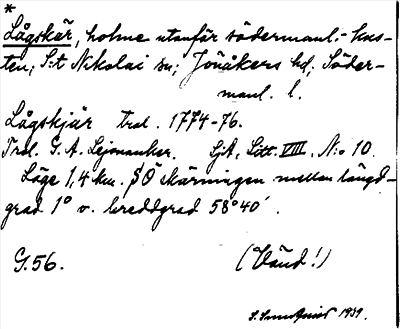 *
Lågskär, holme utanför södermanl.-kus-
ten; S:t Nikolai sn; Jönåkers hd; Söder-
manl. l.
Lågskjär trol. 1774-76.
Trol. G. A. Lejonanker. SjA, Litt. VIII, N:o 10.
Läge 1,4 km. SO skärningen mellan längd-
grad 1° v. breddgrad 58°40′.
G.56. (Vänd!)
1939.